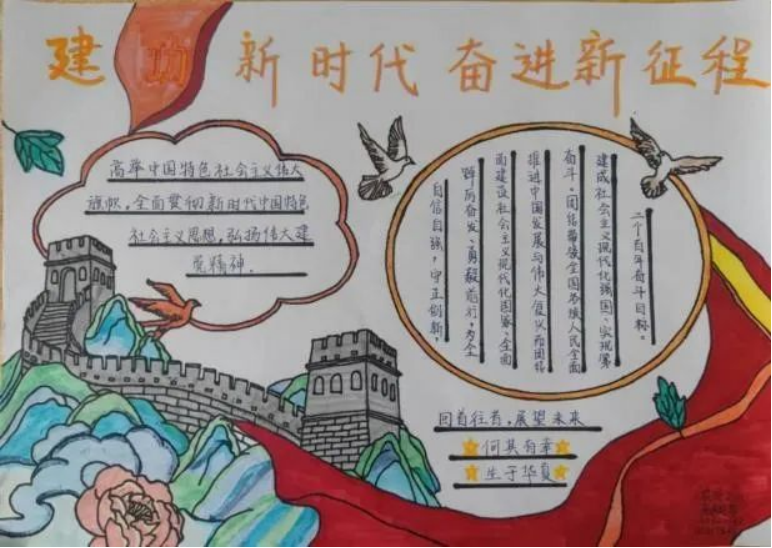 建功新时代 奋进新征程
高举中国特色社会主义伟大
旗帜,全面贯彻新时代中国特色
社会主义思想,弘扬伟大建
党精神.
自信自强,守正创新,
踔厉奋发、勇毅前行,为全
面建设社会主义现代化国家、全面
推进中国发展与伟大复兴而团结
奋斗,团结带领全国各族人民全面
建成社会主义现代化强国、实现第
二个百年奋斗目标。
回首往昔,展望未来
何其有幸
生于华夏